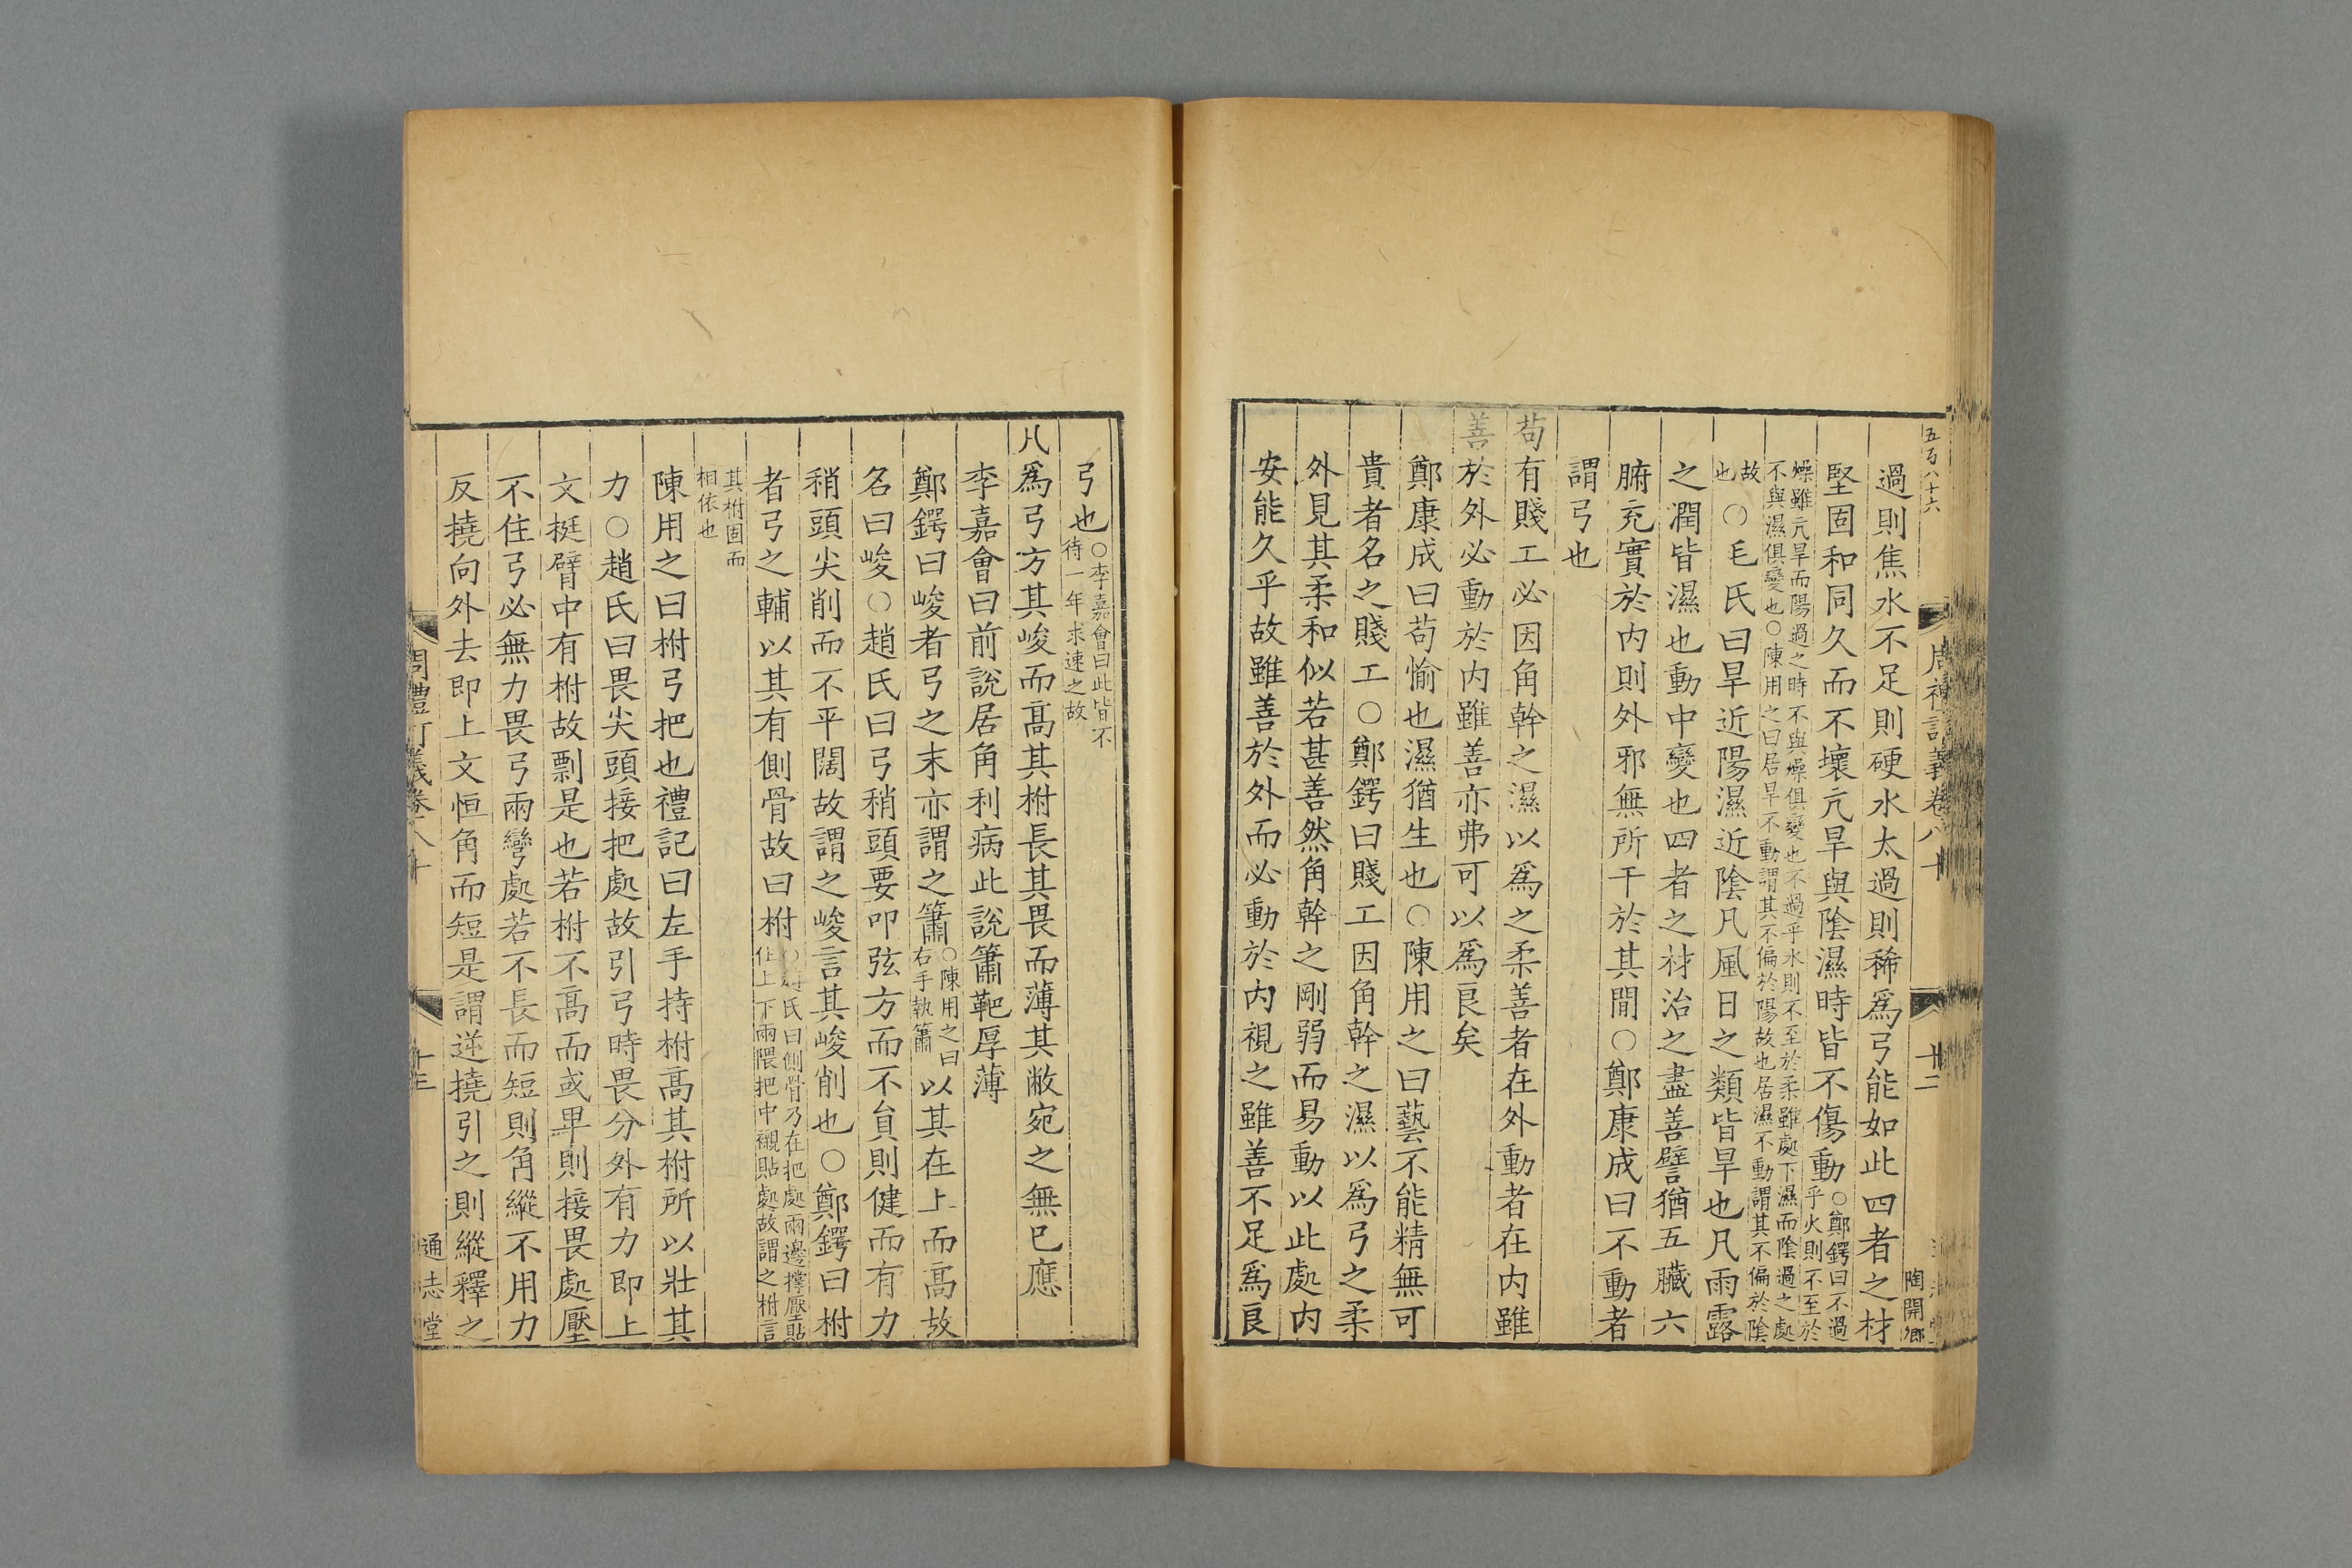 五百八十六
周禮訂義卷八十
十二
陶開鄉
過則焦水不足則硬水太過則稀爲弓能如此四者之材
堅固和同久而不壞亢旱與陰濕時皆不傷動○鄭鍔曰不過乎火則不至於
燥雖亢旱而陽過之時不與燥俱變也不過乎水則不至於柔雖處下濕而陰過之處
不與濕俱變也○陳用之曰居旱不動謂其不偏於陽故也居濕不動謂其不偏於陰
故也○毛氏曰旱近陽濕近陰凡風日之類皆旱也凡雨露
之潤皆濕也動中變也四者之材治之盡善譬猶五臟六
腑充實於内則外邪無所干於其間○鄭康成曰不動者
謂弓也
苟有賤工必因角幹之濕以爲之柔善者在外動者在内雖
善於外必動於内雖善亦弗可以爲良矣
鄭康成曰苟愉也濕猶生也○陳用之曰藝不能精無可
貴者名之賤工○鄭鍔曰賤工因角幹之濕以爲弓之柔
外見其柔和似若甚善然角幹之剛弱而易動以此處内
安能久乎故雖善於外而必動於内視之雖善不足爲良
弓也○李嘉會曰此皆不待一年求速之故
凡爲弓方其峻而高其柎長其畏而薄其敝宛之無已應
李嘉會曰前説居角利病此説簫靶厚薄
鄭鍔曰峻者弓之末亦謂之簫○陳用之曰右手執簫以其在上而高故
名曰峻○趙氏曰弓稍頭要叩弦方而不貟則健而有力
稍頭尖削而不平闊故謂之峻言其峻削也○鄭鍔曰柎
者弓之輔以其有側骨故曰柎○氏曰側骨乃在把處兩邊撑壓貼
在上下兩隈把中襯貼處故謂之柎言
其柎固而
相依也
陳用之曰柎弓把也禮記曰左手持柎高其柎所以壯其
力○趙氏曰畏尖頭接把處故引弓時畏分外有力即上
文挺臂中有柎故剽是也若柎不高而或畢則接畏處壓
不住弓必無力畏弓兩彎處若不長而短則角縱不用力
反撓向外去即上文恒角而短是謂逆撓引之則縱釋之
周禮訂義卷八十
十三
通志堂